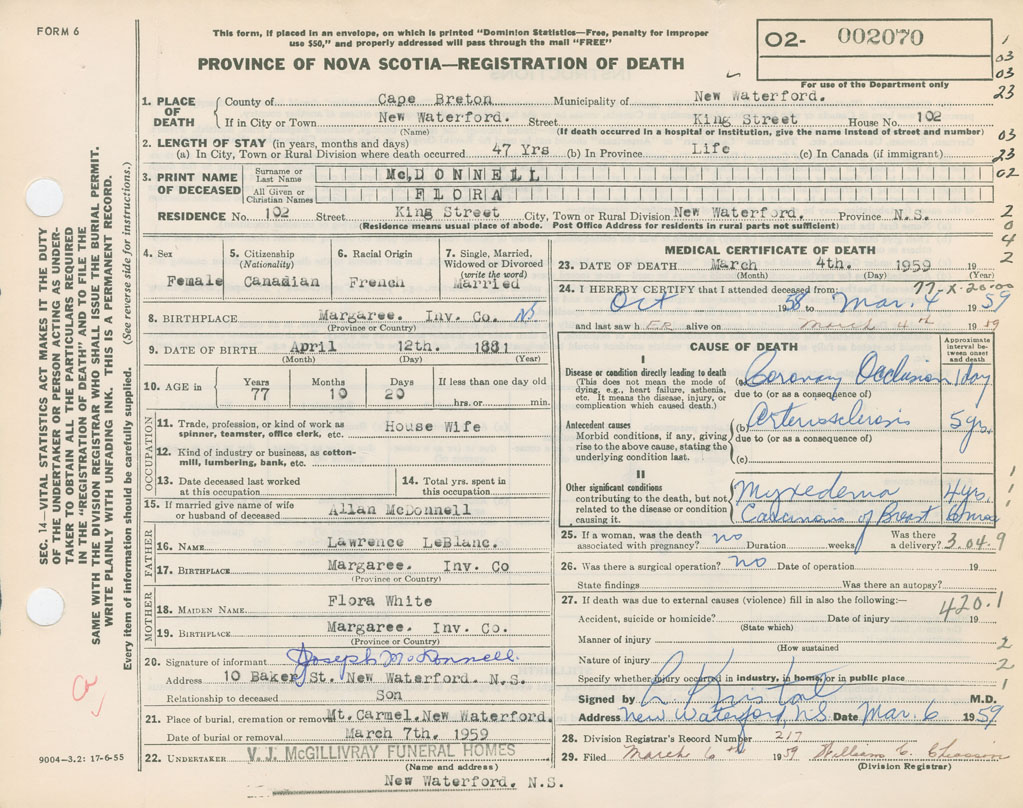 FORM 6
This form, if placed in an envelope, on which is printed "Dominion Statistics—Free, penalty for improper
use $50," and properly addressed will pass through the mail "FREE"
PROVINCE OF NOVA SCOTIA—REGISTRATION OF DEATH
02- 002070
For use of the Department only
1
03
03
23
03
23
02
2
0
4
2
1. PLACE OF DEATH
County of Cape Breton Municipality of New Waterford.
If in City or Town New Waterford. Street King Street House No. 102
(Name) (If death occurred in a hospital or institution, give the name instead of street and number)
2. LENGTH OF STAY (in years, months and days)
(a) In City, Town or Rural Division where death occurred 47 Yrs (b) In Province Life (c) In Canada (if immigrant)
3. PRINT NAME OF DECEASED
Surname or Last Name McDONNELL
All Given or Christian Names FLORA
RESIDENCE No. 102 Street King Street City, Town or Rural Division New Waterford. Province N.S.
(Residence means usual place of abode. Post Office Address for residents in rural parts not sufficient)
4. Sex
Female
5. Citizenship
(Nationality)
Canadian
6. Racial Origin
French
7. Single, Married,
Widowed or Divorced
(write the word)
Married
8. BIRTHPLACE Margaree. Inv. Co. NS
(Province or Country)
9. DATE OF BIRTH April 12th. 1881
(Month) (Day) (Year)
10. AGE in
Years Months Days If less than one day old
77 10 20 hrs. or min.
OCCUPATION
11. Trade, profession, or kind of work as
spinner, teamster, office clerk, etc. House Wife
12. Kind of industry or business, as cotton-
mill, lumbering, bank, etc.
13. Date deceased last worked
at this occupation
14. Total yrs. spent in
this occupation
15. If married give name of wife
or husband of deceased Allan McDonnell
FATHER
16. NAME Lawrence LeBlanc.
17. BIRTHPLACE Margaree. Inv. Co
(Province or Country)
MOTHER
18. MAIDEN NAME Flora White
19. BIRTHPLACE Margaree. Inv. Co.
(Province or Country)
20. Signature of informant Joseph McDonnell.
Address 10 Baker St. New Waterford. N.S.
Relationship to deceased Son
21. Place of burial, cremation or removal Mt. Carmel. New Waterford.
Date of burial or removal March 7th. 1959
22. UNDERTAKER V. J. McGILLIVRAY FUNERAL HOMES
(Name and address)
New Waterford. N.S.
MEDICAL CERTIFICATE OF DEATH
23. DATE OF DEATH March 4th. 1959 19
(Month) (Day) (Year)
77-X-20-00
24. I HEREBY CERTIFY that I attended deceased from:
Oct 1958 to Mar. 4 1959
and last saw h ER alive on March 4th 1959
CAUSE OF DEATH
Approximate
interval be-
tween onset
and death
I
Disease or condition directly leading to death
(This does not mean the mode of
dying, e.g., heart failure, asthenia,
etc. It means the disease, injury, or
complication which caused death.)
(a) Coronary Occlusion 1 day
due to (or as a consequence of)
Antecedent causes
Morbid conditions, if any, giving
rise to the above cause, stating the
underlying condition last.
(b) Arteriosclerosis 5 yrs.
due to (or as a consequence of)
(c)
II
Other significant conditions
contributing to the death, but not
related to the disease or condition
causing it.
Myxedema 4 yrs.
Carcinosis of Breast 6 mos
1
1
1
25. If a woman, was the death
associated with pregnancy? no Duration weeks Was there
a delivery? 3.04.9
26. Was there a surgical operation? no Date of operation 19
State findings Was there an autopsy?
27. If death was due to external causes (violence) fill in also the following:—
420.1
Accident, suicide or homicide? Date of injury 19
(State which)
Manner of injury
(How sustained
2
Nature of injury
2
Specify whether injury occurred in industry, in home, or in public place
1
Signed by M.D.
Address New Waterford, N.S. Date Mar. 6 1959
28. Division Registrar's Record Number 217
29. Filed March 6th 1959 William C. Chiasson
(Division Registrar)
SEC. 14—VITAL STATISTICS ACT MAKES IT THE DUTY
OF THE UNDERTAKER OR PERSON ACTING AS UNDER-
TAKER TO OBTAIN ALL THE PARTICULARS REQUIRED
IN THE "REGISTRATION OF DEATH" AND TO FILE THE
SAME WITH THE DIVISION REGISTRAR WHO SHALL ISSUE THE BURIAL PERMIT.
WRITE PLAINLY WITH UNFADING INK. THIS IS A PERMANENT RECORD.
Every item of information should be carefully supplied. (See reverse side for instructions.)
9004—3.2: 17-6-55